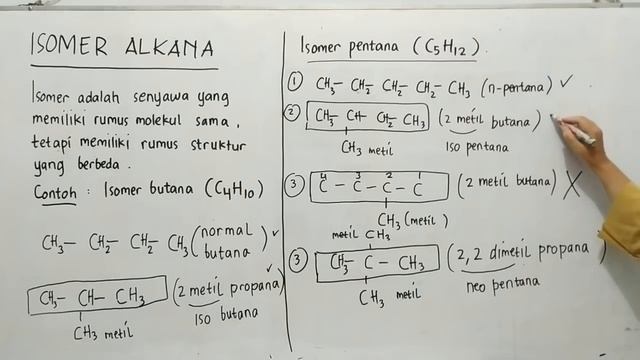 ISOMER ALKANA
Isomer adalah senyawa yang
memiliki rumus molekul sama,
tetapi memiliki rumus struktur
yang berbeda.
Contoh : Isomer butana (C4H10)
CH3– CH2– CH2– CH3 (normal butana) ✓
CH3– CH– CH3 (2 metil propana) ✓
CH3 metil
iso butana
Isomer pentana (C5H12).
① CH3– CH2– CH2– CH2– CH3 (n-pentana) ✓
② CH3– CH– CH2– CH3 (2 metil butana)
CH3 metil
iso pentana
③ 4 3 2 1
C – C – C – C (2 metil butana) X
CH3 (metil)
metil CH3
③ CH3– C – CH3 (2,2 dimetil propana)
CH3 metil
neo pentana